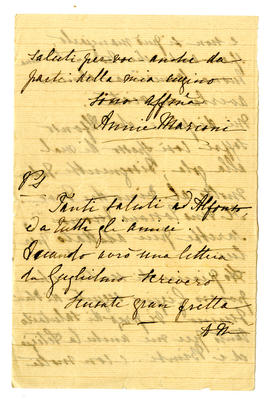 saluti per voi anche da
parte della mia cugina
sono affma
Annie Marconi
PS
Tanti saluti ad Alfonso
da tutti gli amici.
Quando avrò una lettera
da Guglielmo scriverò
Scusate gran fretta
AM